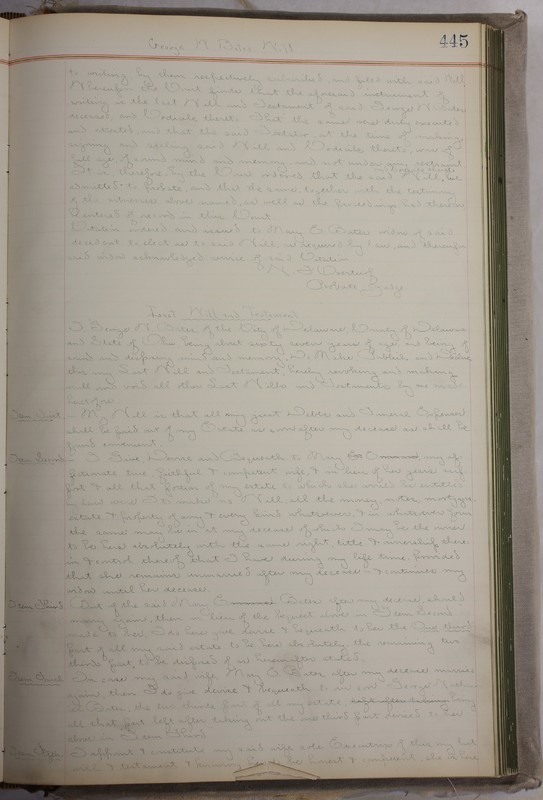 George N. Bates Will
445
to writing by them respectively subscribed, and filed with said Will
Whereupon the Court finds that the aforesaid instrument of
writing is the last Will and Testament of said George N. Bates
deceased, and Codicils thereto. That the same were duly executed
and attested, and that the said Testator, at the time of making
signing and sealing said Will and Codicils thereto, was of
full age, of sound mind and memory, and not under any restraint
It is, therefore, by the Court ordered, that the said Will, be
admitted to Probate, and that the same, together with the testimony
of the witnesses above named, as well as the proceedings had thereon
be entered of record in this Court
Citation ordered and issued to Mary C. Bates widow of said
decedent to elect as to said Will, as required by law, and thereupon
said widow acknowledged service of said Citation
Probate Judge
Last Will and Testament
I, George N. Bates of the City of Delaware, County of Delaware
and State of Ohio being about sixty seven years of age and being of
sound and disposing mind and memory, do Make, Publish, and declare
this my Last Will and Testament, hereby revoking and making
null and void all other Last Wills and Testaments by me made
heretofore
Item First My Will is that all my just Debts and Funeral Expenses
shall be paid out of my Estate as soon after my decease as shall be
found convenient.
Item Second I Give, Devise and Bequeath to Mary C. my af-
fectionate, true, faithful & competent wife, & in lieu of her
& all that portion of my estate to which she would be entitled
by law all the money, notes, mortgages
estate & property of any & every kind whatsoever, & in whatsoever form
the same may be in at my decease of which I may be the owner
to be hers absolutely with the same right title & ownership there-
in & control thereof that I have during my life time, provided
that she remains unmarried after my decease & continues my
widow until her decease.
Item Third But if the said Mary C. Bates after my decease, should
marry again, then in lieu of the bequest above in Item Second
made to her, I do here give devise & bequeath to her the One third
part of all my said estate to be hers absolutely, the remaining two
thirds part, to be disposed of as hereinafter stated.
Item Fourth In case my said wife, Mary C. Bates after my decease marries
again then I do give devise & bequeath to my son George
Bates, the two thirds part of all my estate being
all that part left after taking out the one third part devised to her
above in Item Third
I appoint & constitute my said wife sole Executrix of this my last
will & testament & knowing her to be honest & competent, she is